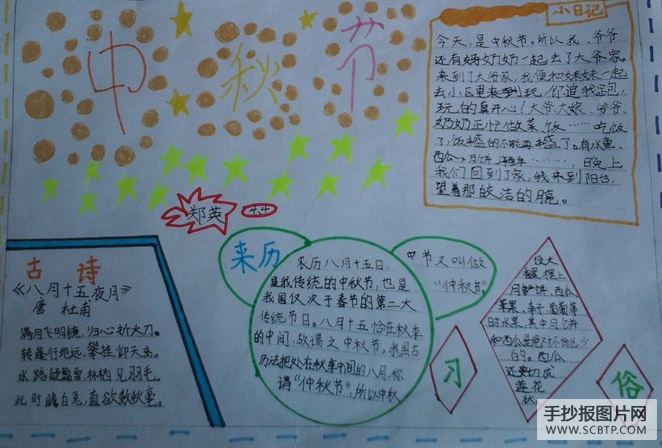 中秋节
小日记
今天,是中秋节。所以我、爷爷
还有妈奶奶一起去了大爷家。
来到了大爷家,我便和妹妹一起
去小区里来到玩,你追我赶包,
玩的真开心!大爷大娘、爷爷、
奶奶正忙做菜饭……吃饭
了,饭盛的不能再盛了。有水鱼、
西瓜、月饼
……,日晚上
我们回到了家,我来到阳台,
望着那皎洁的月。
郑英
古诗
《八月十五夜月》
唐 杜甫
满月飞明镜,归心折大刀。
转蓬行地远,攀桂仰天高。
水路疑霜雪,林栖见羽毛。
此时瞻白兔,直欲数秋毫。
来历
农历八月十五日,
是我传统的中秋节,也是
我国仅次于春节的第二大
传统节日。八月十五恰在秋季
的中间,故谓之中秋节。我国古
历法把处在秋季中间的八月,称
谓“仲秋节”,所以中秋
中节又叫做
“仲秋节”
习
设大
摆上
月饼、西瓜
苹果、李子、葡萄等
时水果,其中月饼
和西瓜是绝对不能少
的。西瓜
还要切成
莲花
状
俗
手抄报图片网
WWW.SCBTP.COM